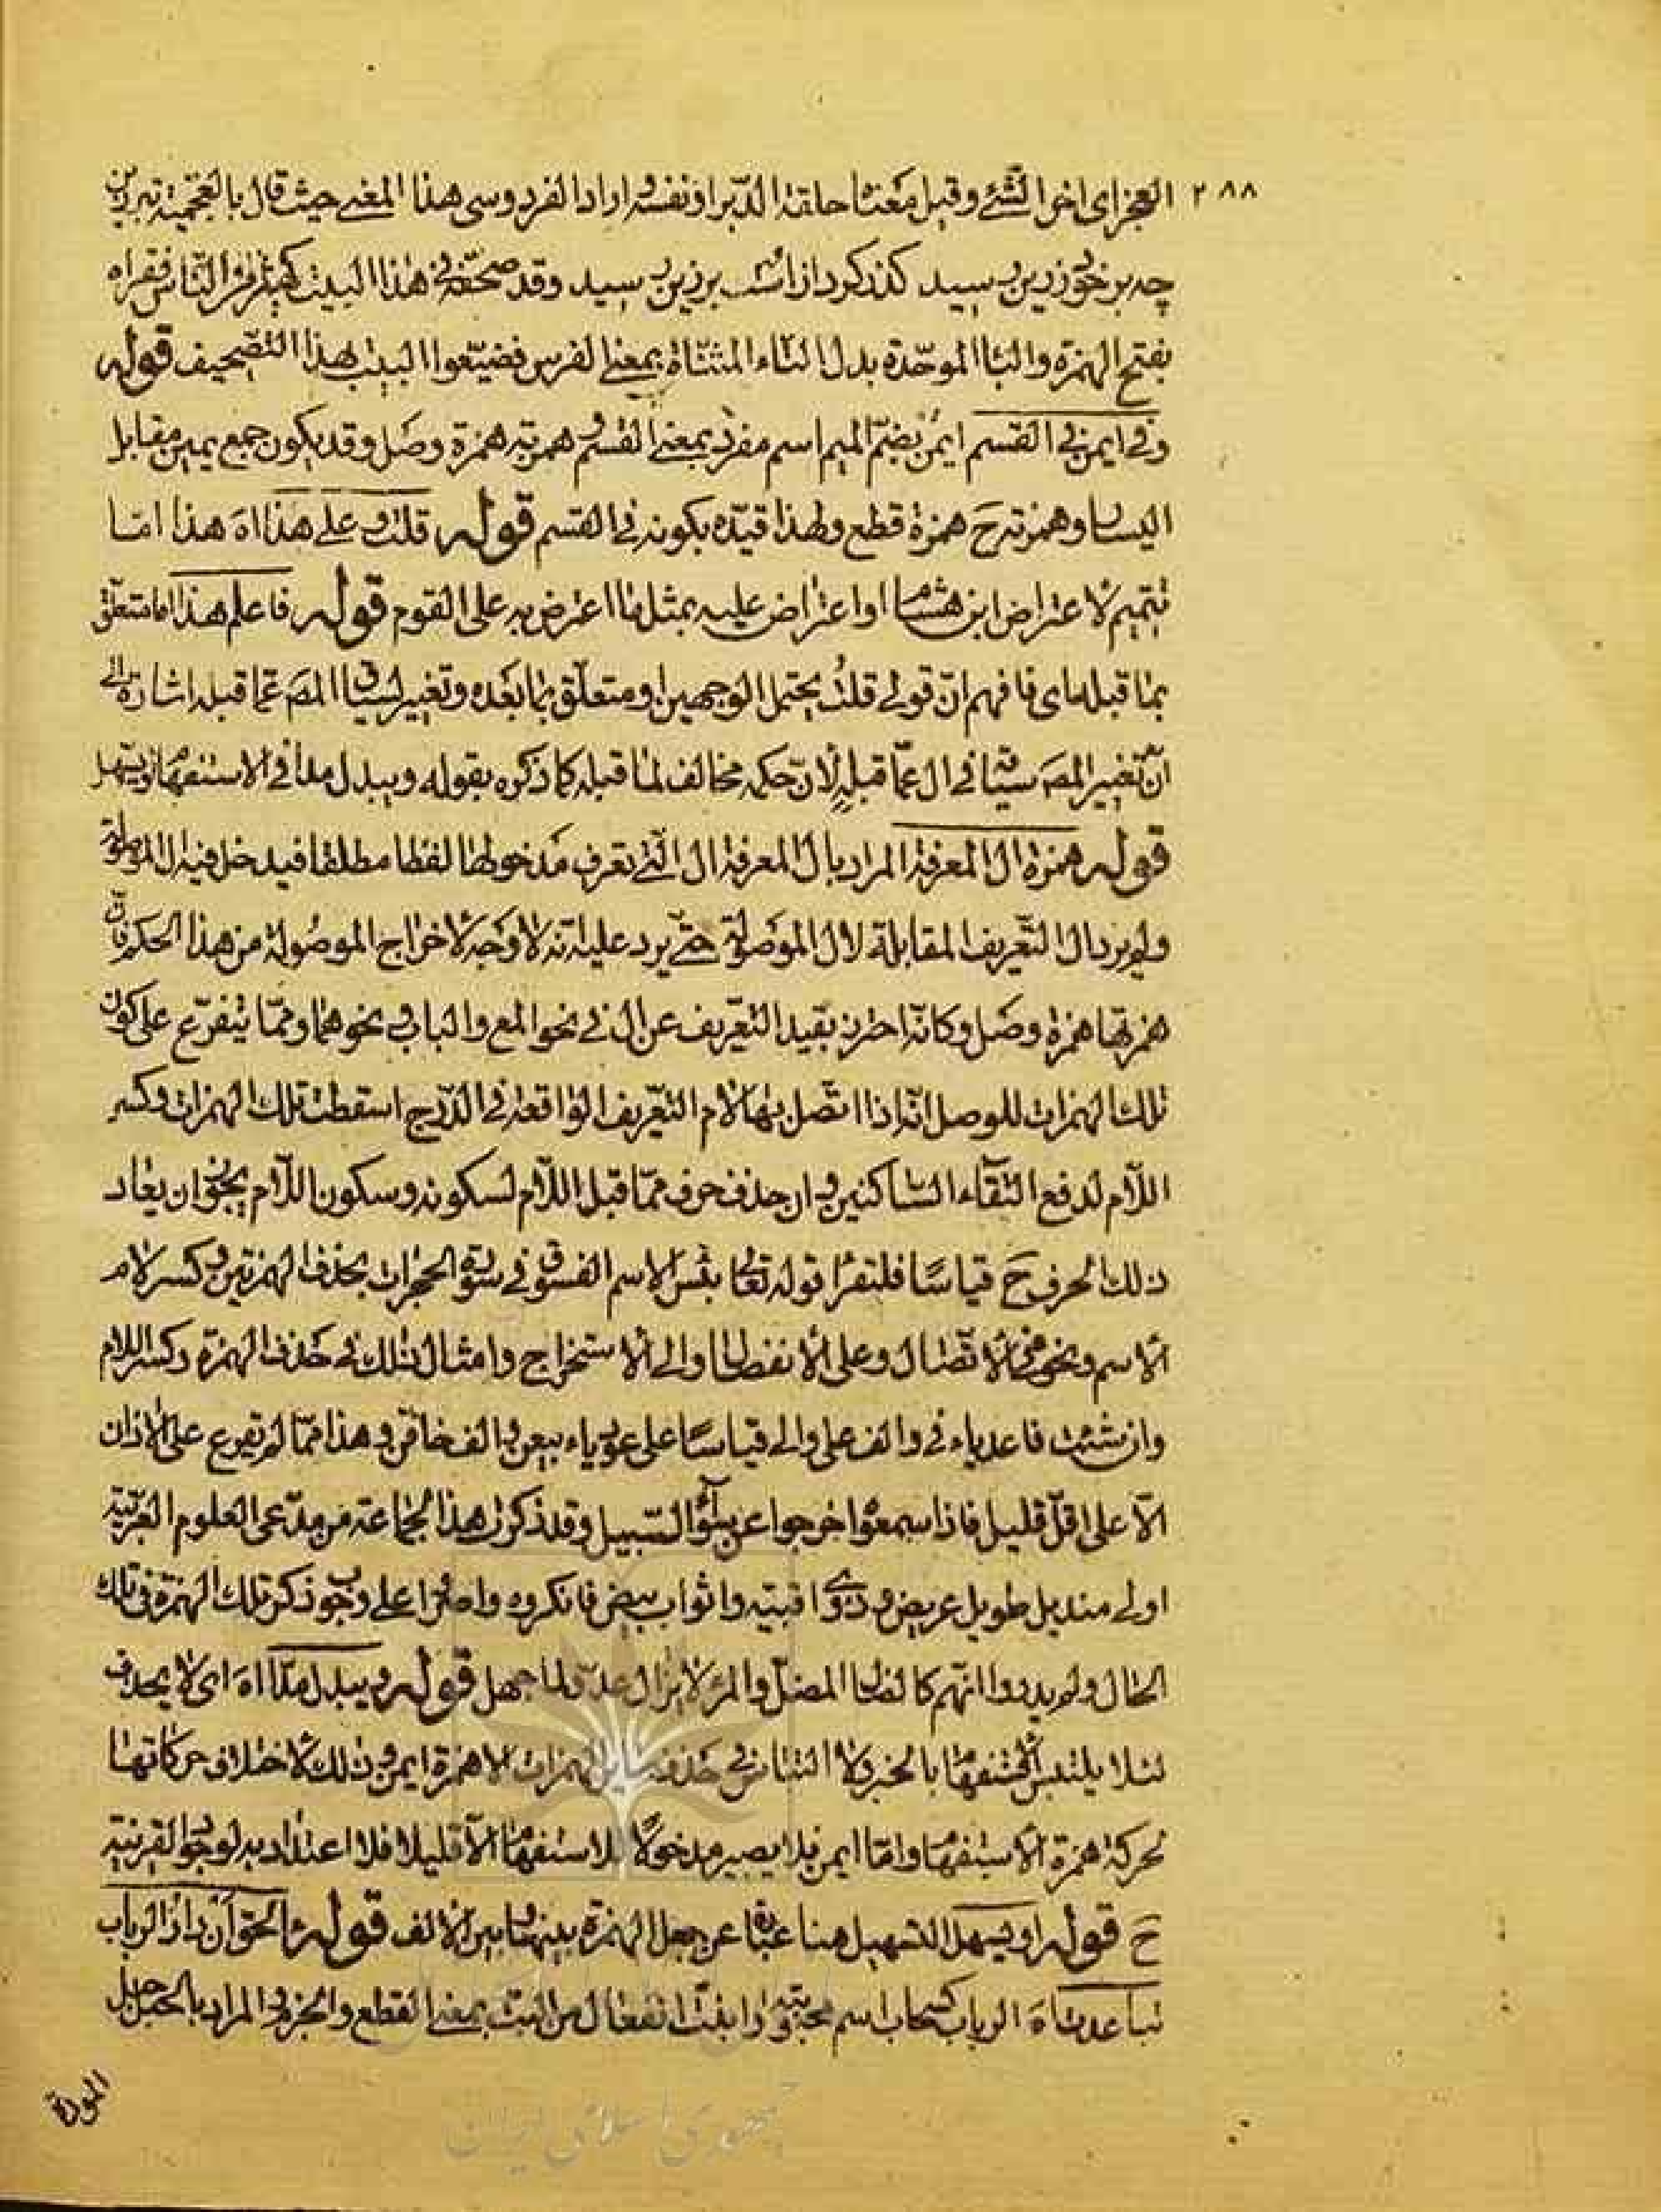 ٢٨٨ العجز اى اخر الشئ وقيل معناه حلقة الدبر او نفسه اراد الفردوسى هذا المعنى حيث قال بالعجمية
چه بر خوزرين سيد كذر كرد از است برزين سيد وقد صحّفه فى هذا البيت كثير من الناس فقراه
بفتح الهمزة والباء الموحّدة بدل التاء المثنّاة بمعنى الفرس فضيّعوا البيت بهذا التصحيف قوله
وفى ايمن فى القسم ايمُن بضمّ الميم اسم مفرد بمعنى القسم وهمزته همزة وصل وقد يكون جمع يمين مقابل
اليسار وهمزته ح همزة قطع ولهذا قيّده بكونه فى القسم قوله قلت وعلى هذا اه هذا امّا
تتميم لاعتراض ابن هشام او اعتراض عليه بمثل ما اعترض به على القوم قوله فاعلم هذا اما متعلّق
بما قبله اى فافهم انّ قولى قلت يحتمل الوجهين او متعلّق بما بعده وتغيير لسياق المص عمّا قبله اشارة الى
انّ تغيير المص سيّما فى ال عمّا قبله لانّ حكمه مخالف لما قبله كما ذكره بقوله ويبدل مدا فى الاستفهام او يسهل
قوله همزة ال المعرفة المراد بال المعرفة ال الّتى تعرف مدخولها لفظا مطلقا فيدخل فيه ال الموصولة
ولم يرد ال التعريف المقابلة لال الموصولة حتّى يرد عليه انّه لا وجه لاخراج الموصولة من هذا الحكم فانّ
همزتها همزة وصل وكانّه احترز بقيد التعريف عن ال فى نحو المع والباب فى نحوهما وممّا يتفرّع على كون
تلك الهمزات للوصل انّه اذا اتّصل بها لام التعريف الواقعة فى الدّرج اسقطت تلك الهمزات وكسر
اللام لدفع التقاء الساكنين وان حذف حرف ممّا قبل اللام لسكونه وسكون اللام يجوز ان يعاد
ذلك الحرف ح قياسًا فلتقرأ قوله تعالى بئس الاسم الفسوق فى سورة الحجرات بحذف الهمزتين وكسر لام
الاسم ونحوه فى الاتّصال وعلى الانفصال والى الاستخراج وامثال ذلك فى حذف الهمزة وكسر اللام
وان شئت فاعد ياء فى والف على والى قياسًا على عود ياء بيعن والف خافن وهذا ممّا لم يقرع على الاذان
الّا على اقلّ قليل فاذا سمعوا خرجوا عن سواء السبيل وقد ذكرت هذا لجماعة من مدّعى العلوم العربيّة
اولى منديل طويل عريض وذوى اقبية واثواب بيض فانكروه واصرّوا على وجوب ذكر تلك الهمزة فى تلك
الحال ولم يدروا انّهم كالضال المضلّ والمرء لا يزال عدوّا لما جهل قوله ويبدل مدّا اه اى لا يحذف
لئلا يلتبس الاستفهام بالخبر ولا التباس فى حذف سائر الهمزات الا همزة ايمن وذلك لاختلاف حركاتها
لحركة همزة الاستفهام وامّا ايمن فلا يصير مدخولا للاستفهام الّا قليلا فلا اعتداد به لوجود القرينة
ح قوله او يسهل التسهيل هنا عبارة عن جعل الهمزة بينها وبين الالف قوله أالحق ان دار الرباب
تباعدت اه الرباب كسحاب اسم محبوبته وانبتّ انفعال من البتّ بمعنى القطع والجزم والمراد بالحبل حبل
المودّة